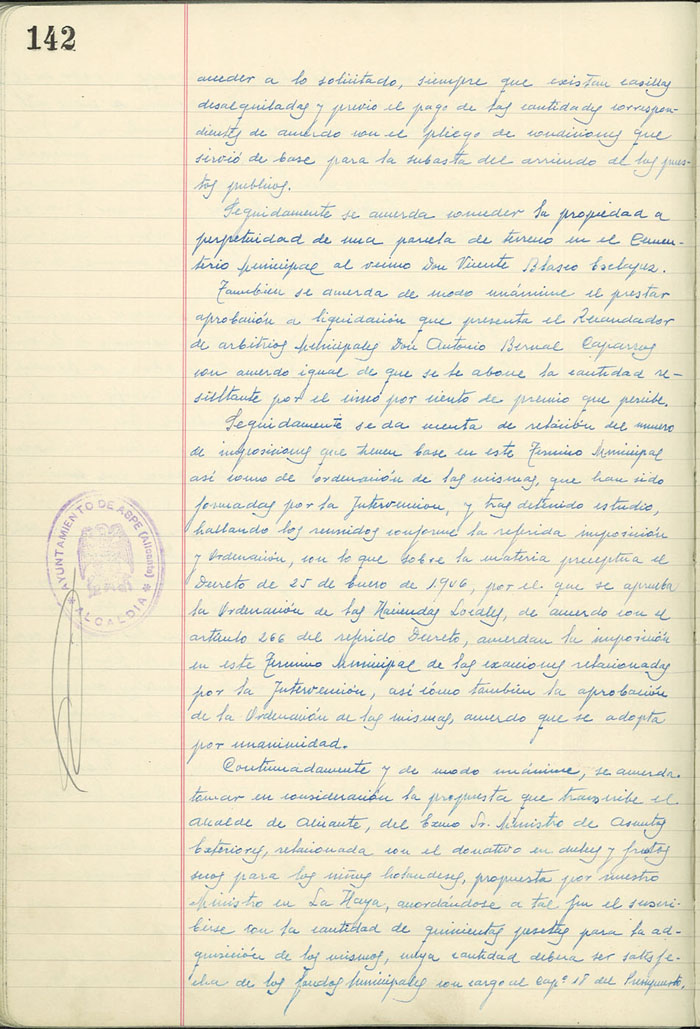 142
acceder a lo solicitado, siempre que existan casillas
desalquiladas y previo el pago de las cantidades correspon-
dientes de acuerdo con el pliego de condiciones que
sirvió de base para la subasta del arriendo de los pues-
tos publicos.
Seguidamente se acuerda conceder la propiedad a
perpetuidad de una parcela de terreno en el Cemen-
terio Municipal al vecino Don Vicente Blasco Esclapez.
Tambien se acuerda de modo unánime el prestar
aprobación a liquidación que presenta el Recaudador
de arbitrios Municipales Don Antonio Bernal Caparros
con acuerdo igual de que se le abone la cantidad re-
sultante por el cinco por ciento de premio que percibe.
Seguidamente se da cuenta de relación del numero
de imposiciones que tienen base en este Termino Municipal
así como de ordenación de las mismas, que han sido
formadas por la Intervencion, y tras detenido estudio,
hallando los reunidos conforme la referida imposición
y Ordenación, con lo que sobre la materia preceptua el
Decreto de 25 de Enero de 1.946, por el que se aprueba
la Ordenación de las Haciendas Locales, de acuerdo con el
artículo 266 del referido Decreto, acuerdan la imposición
en este Termino Municipal de las exacciones relacionadas
por la Intervención, así cómo tambien la aprobación
de la Ordenación de las mismas, acuerdo que se adopta
por unanimidad.
Continuadamente y de modo unánime, se acuerda
tomar en consideración la propuesta que transcribe el
Alcalde de Alicante, del Excmo Sr. Ministro de Asuntos
Exteriores, relacionada con el donativo en dulces y frutos
secos para los niños holandeses, propuesta por nuestro
Ministro en La Haya, acordándose a tal fin el suscri-
birse con la cantidad de quinientas pesetas para la ad-
quisición de los mismos, cuya cantidad debera ser satisfe-
cha de los fondos Municipales con cargo al Capº 18 del Presupuesto.
AYUNTAMIENTO DE ASPE (Alicante)
* ALCALDIA *